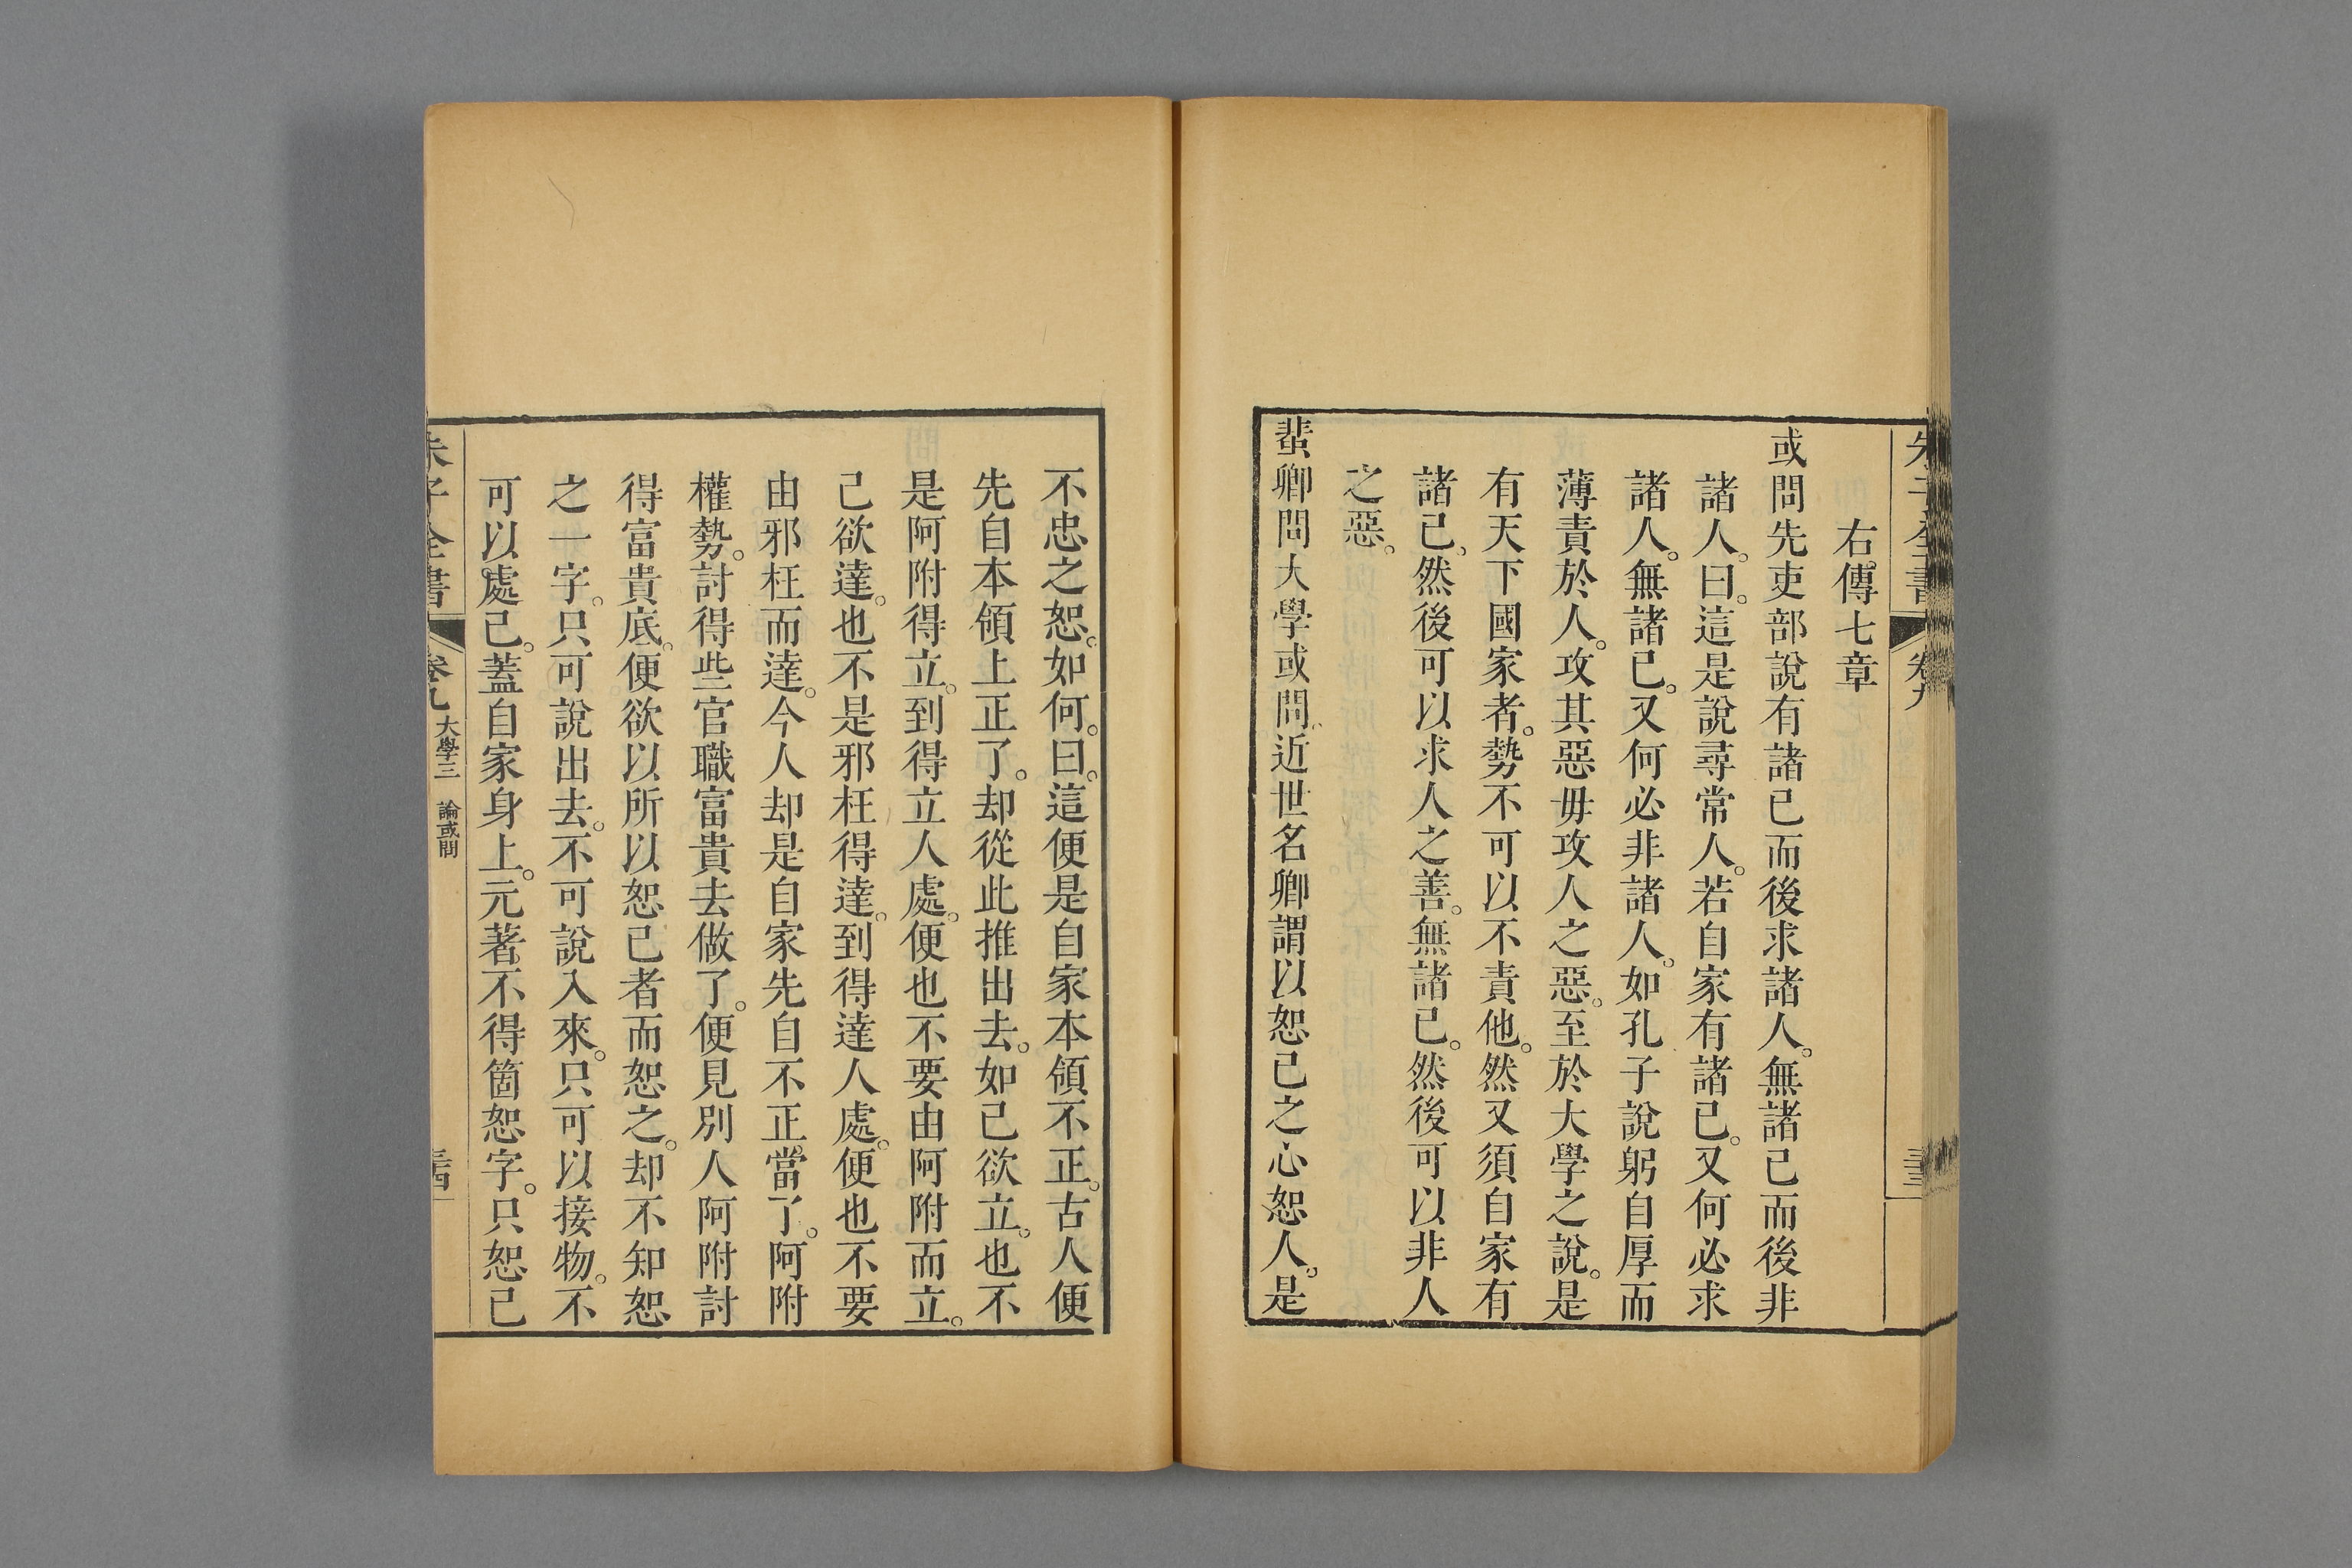 朱子全書 卷九
右傳七章
或問先吏部說有諸己而後求諸人。無諸己而後非
諸人。曰。這是說尋常人。若自家有諸己。又何必求
諸人。無諸己。又何必非諸人。如孔子說躬自厚而
薄責於人。攻其惡毋攻人之惡。至於大學之說。是
有天下國家者。勢不可以不責他。然又須自家有
諸己。然後可以求人之善。無諸己。然後可以非人
之惡。
蜚卿問大學或問。近世名卿謂以恕己之心恕人。是
不忠之恕。如何。曰。這便是自家本領不正。古人便
先自本領上正了。却從此推出去。如己欲立。也不
是阿附得立。到得立人處。便也不要由阿附而立。
己欲達。也不是邪枉得達。到得達人處。便也不要
由邪枉而達。今人却是自家先自不正當了。阿附
權勢。討得些官職富貴去做了。便見別人阿附討
得富貴底。便欲以所以恕己者而恕之。却不知恕
之一字。只可說出去。不可說入來。只可以接物。不
可以處己。蓋自家身上。元著不得箇恕字。只恕己
朱子全書 卷九 大學三 論或問